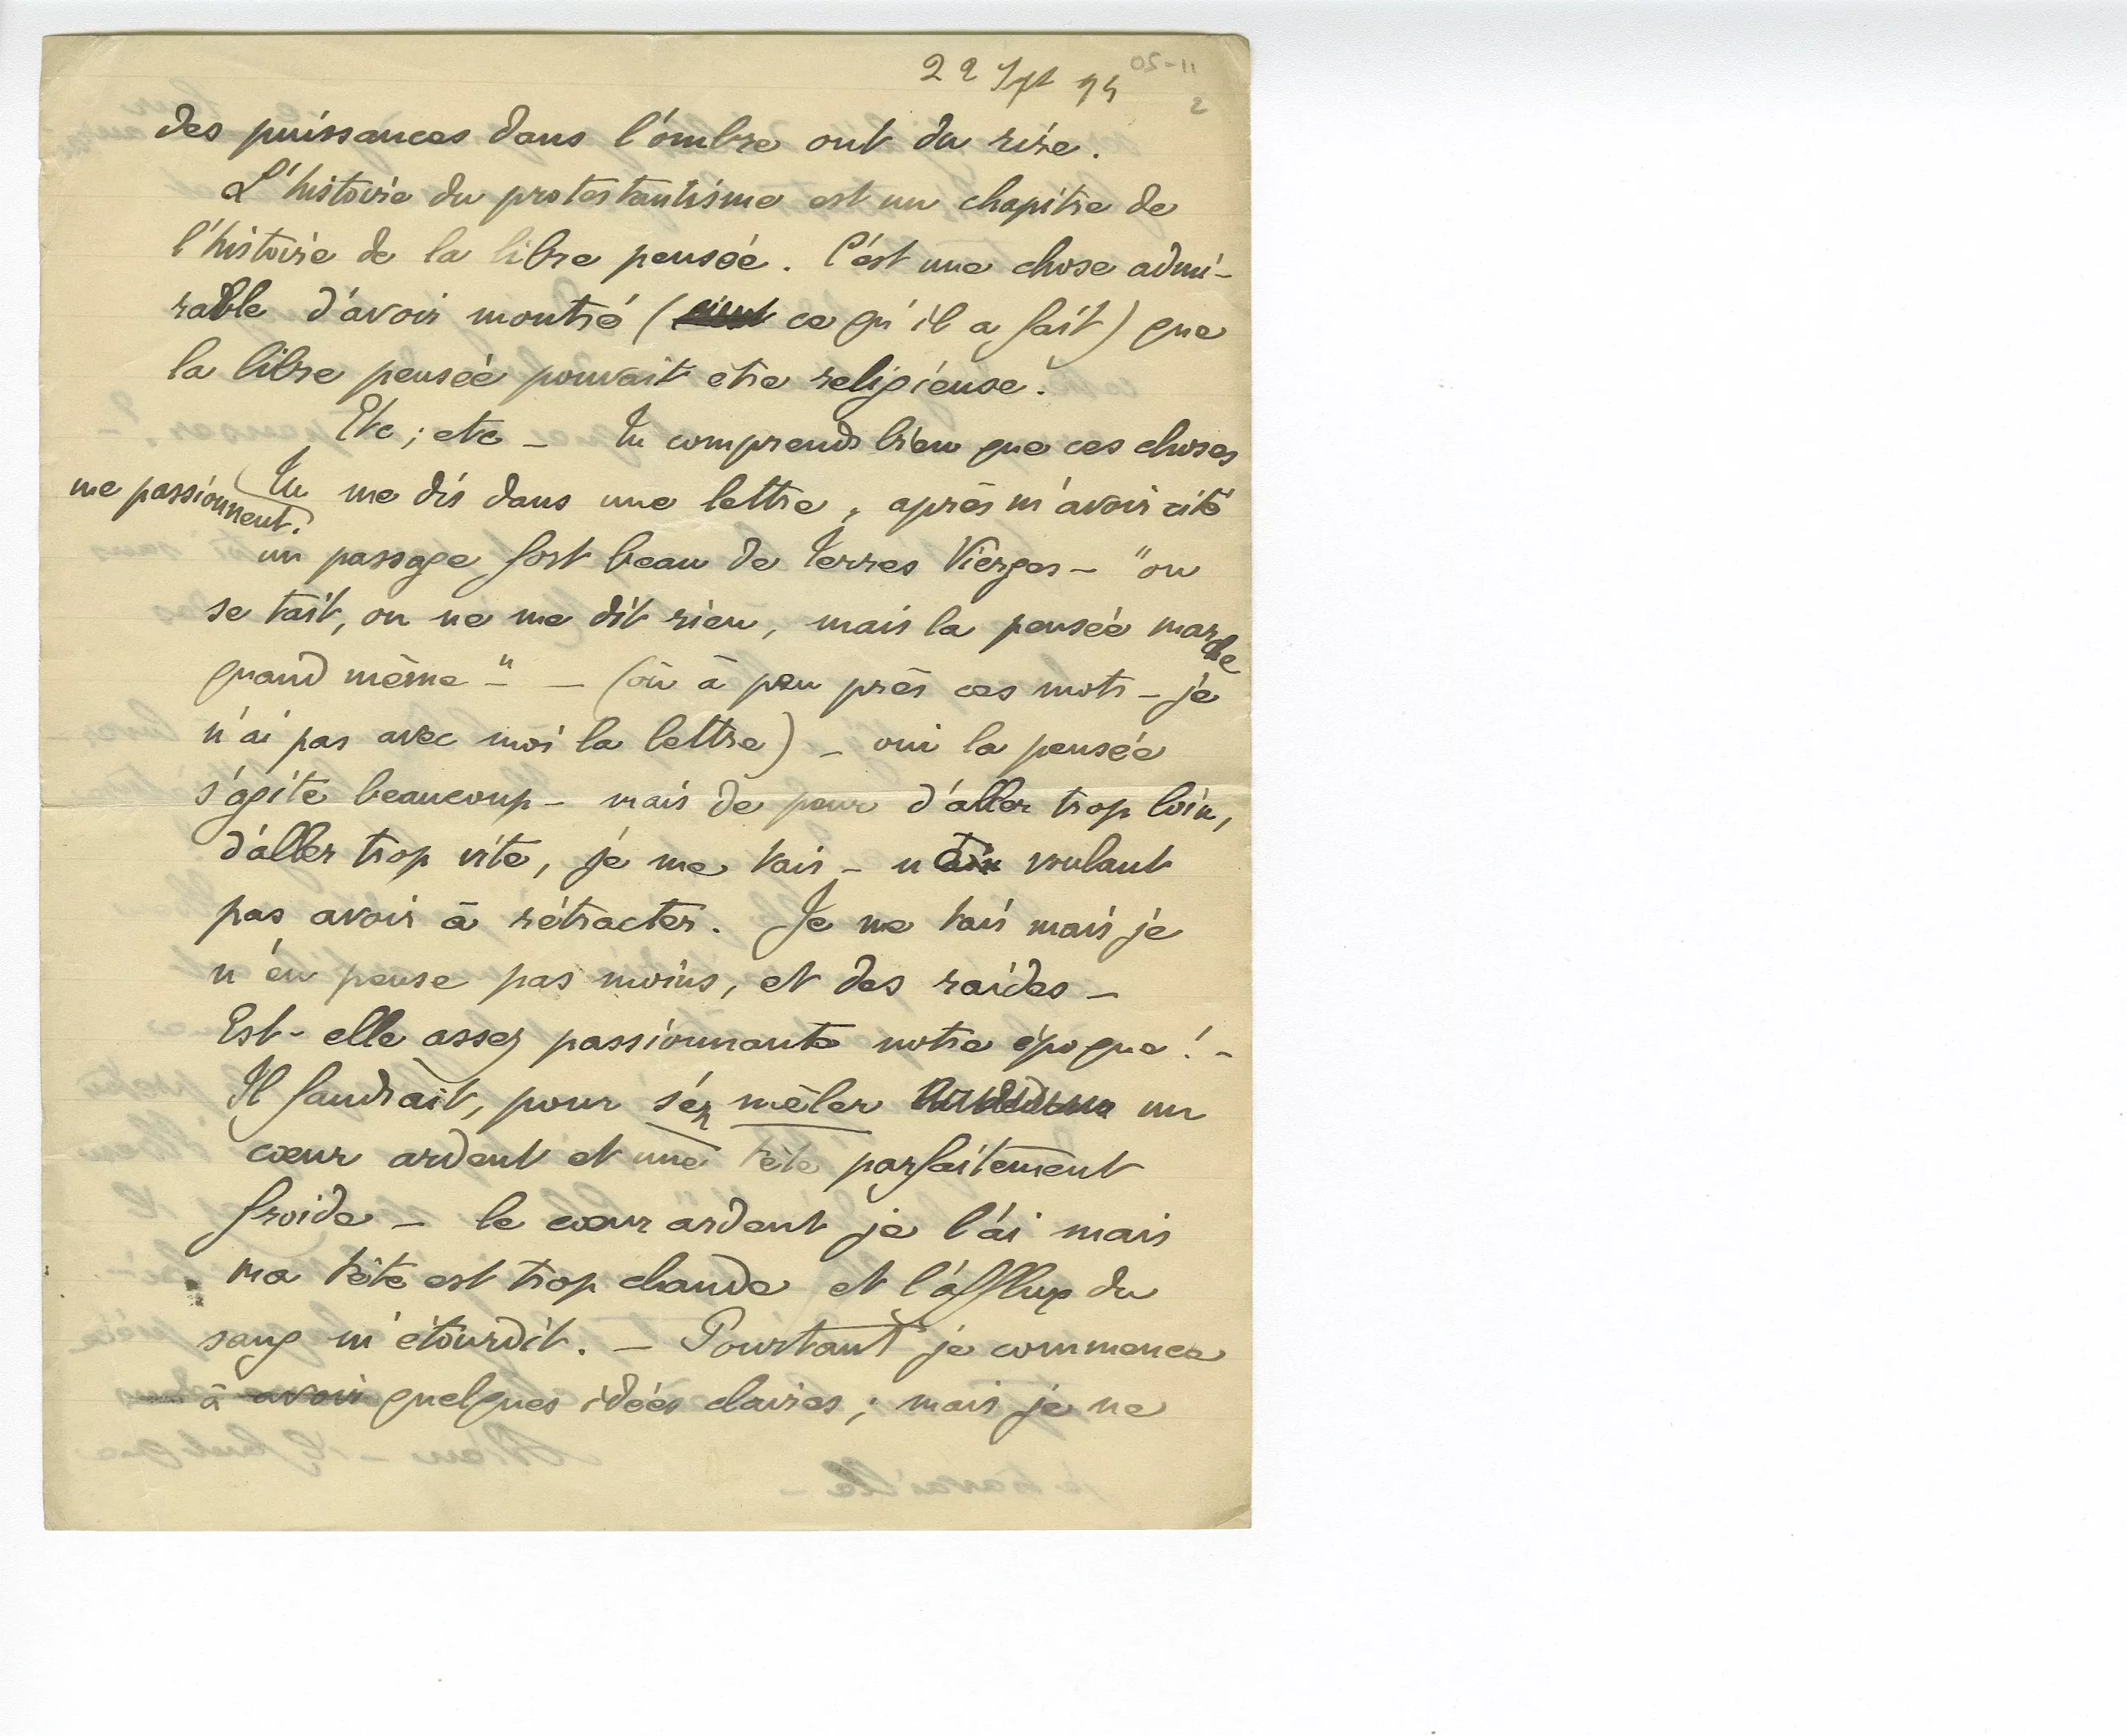 22 Sept 94
des puissances dans l'ombre ont du rire.
L'histoire du protestantisme est un chapitre de
l'histoire de la libre pensée. C'est une chose admi-
rable d'avoir montré ( ce qu'il a fait) que
la libre pensée pouvait etre religieuse.
Etc ; etc – Tu comprends bien que ces choses
me passionnent.
Tu me dis dans une lettre, après m'avoir cité
un passage fort beau de Terres Vierges – "on
se tait, on ne me dit rien, mais la pensée marche
quand même –" – (ou à peu près ces mots – je
n'ai pas avec moi la lettre) – oui la pensée
s'agite beaucoup – mais de peur d'aller trop loin,
d'aller trop vite, je me tais – voulant
pas avoir à rétracter. Je me tais mais je
n'en pense pas moins, et des raides –
Est-elle assez passionnante notre époque ! –
Il faudrait, pour s'en mêler un
cœur ardent et une tête parfaitement
froide – le cœur ardent je l'ai mais
ma tête est trop chaude et l'afflux du
sang m'étourdit. – Pourtant je commence
à avoir quelques idées claires ; mais je ne